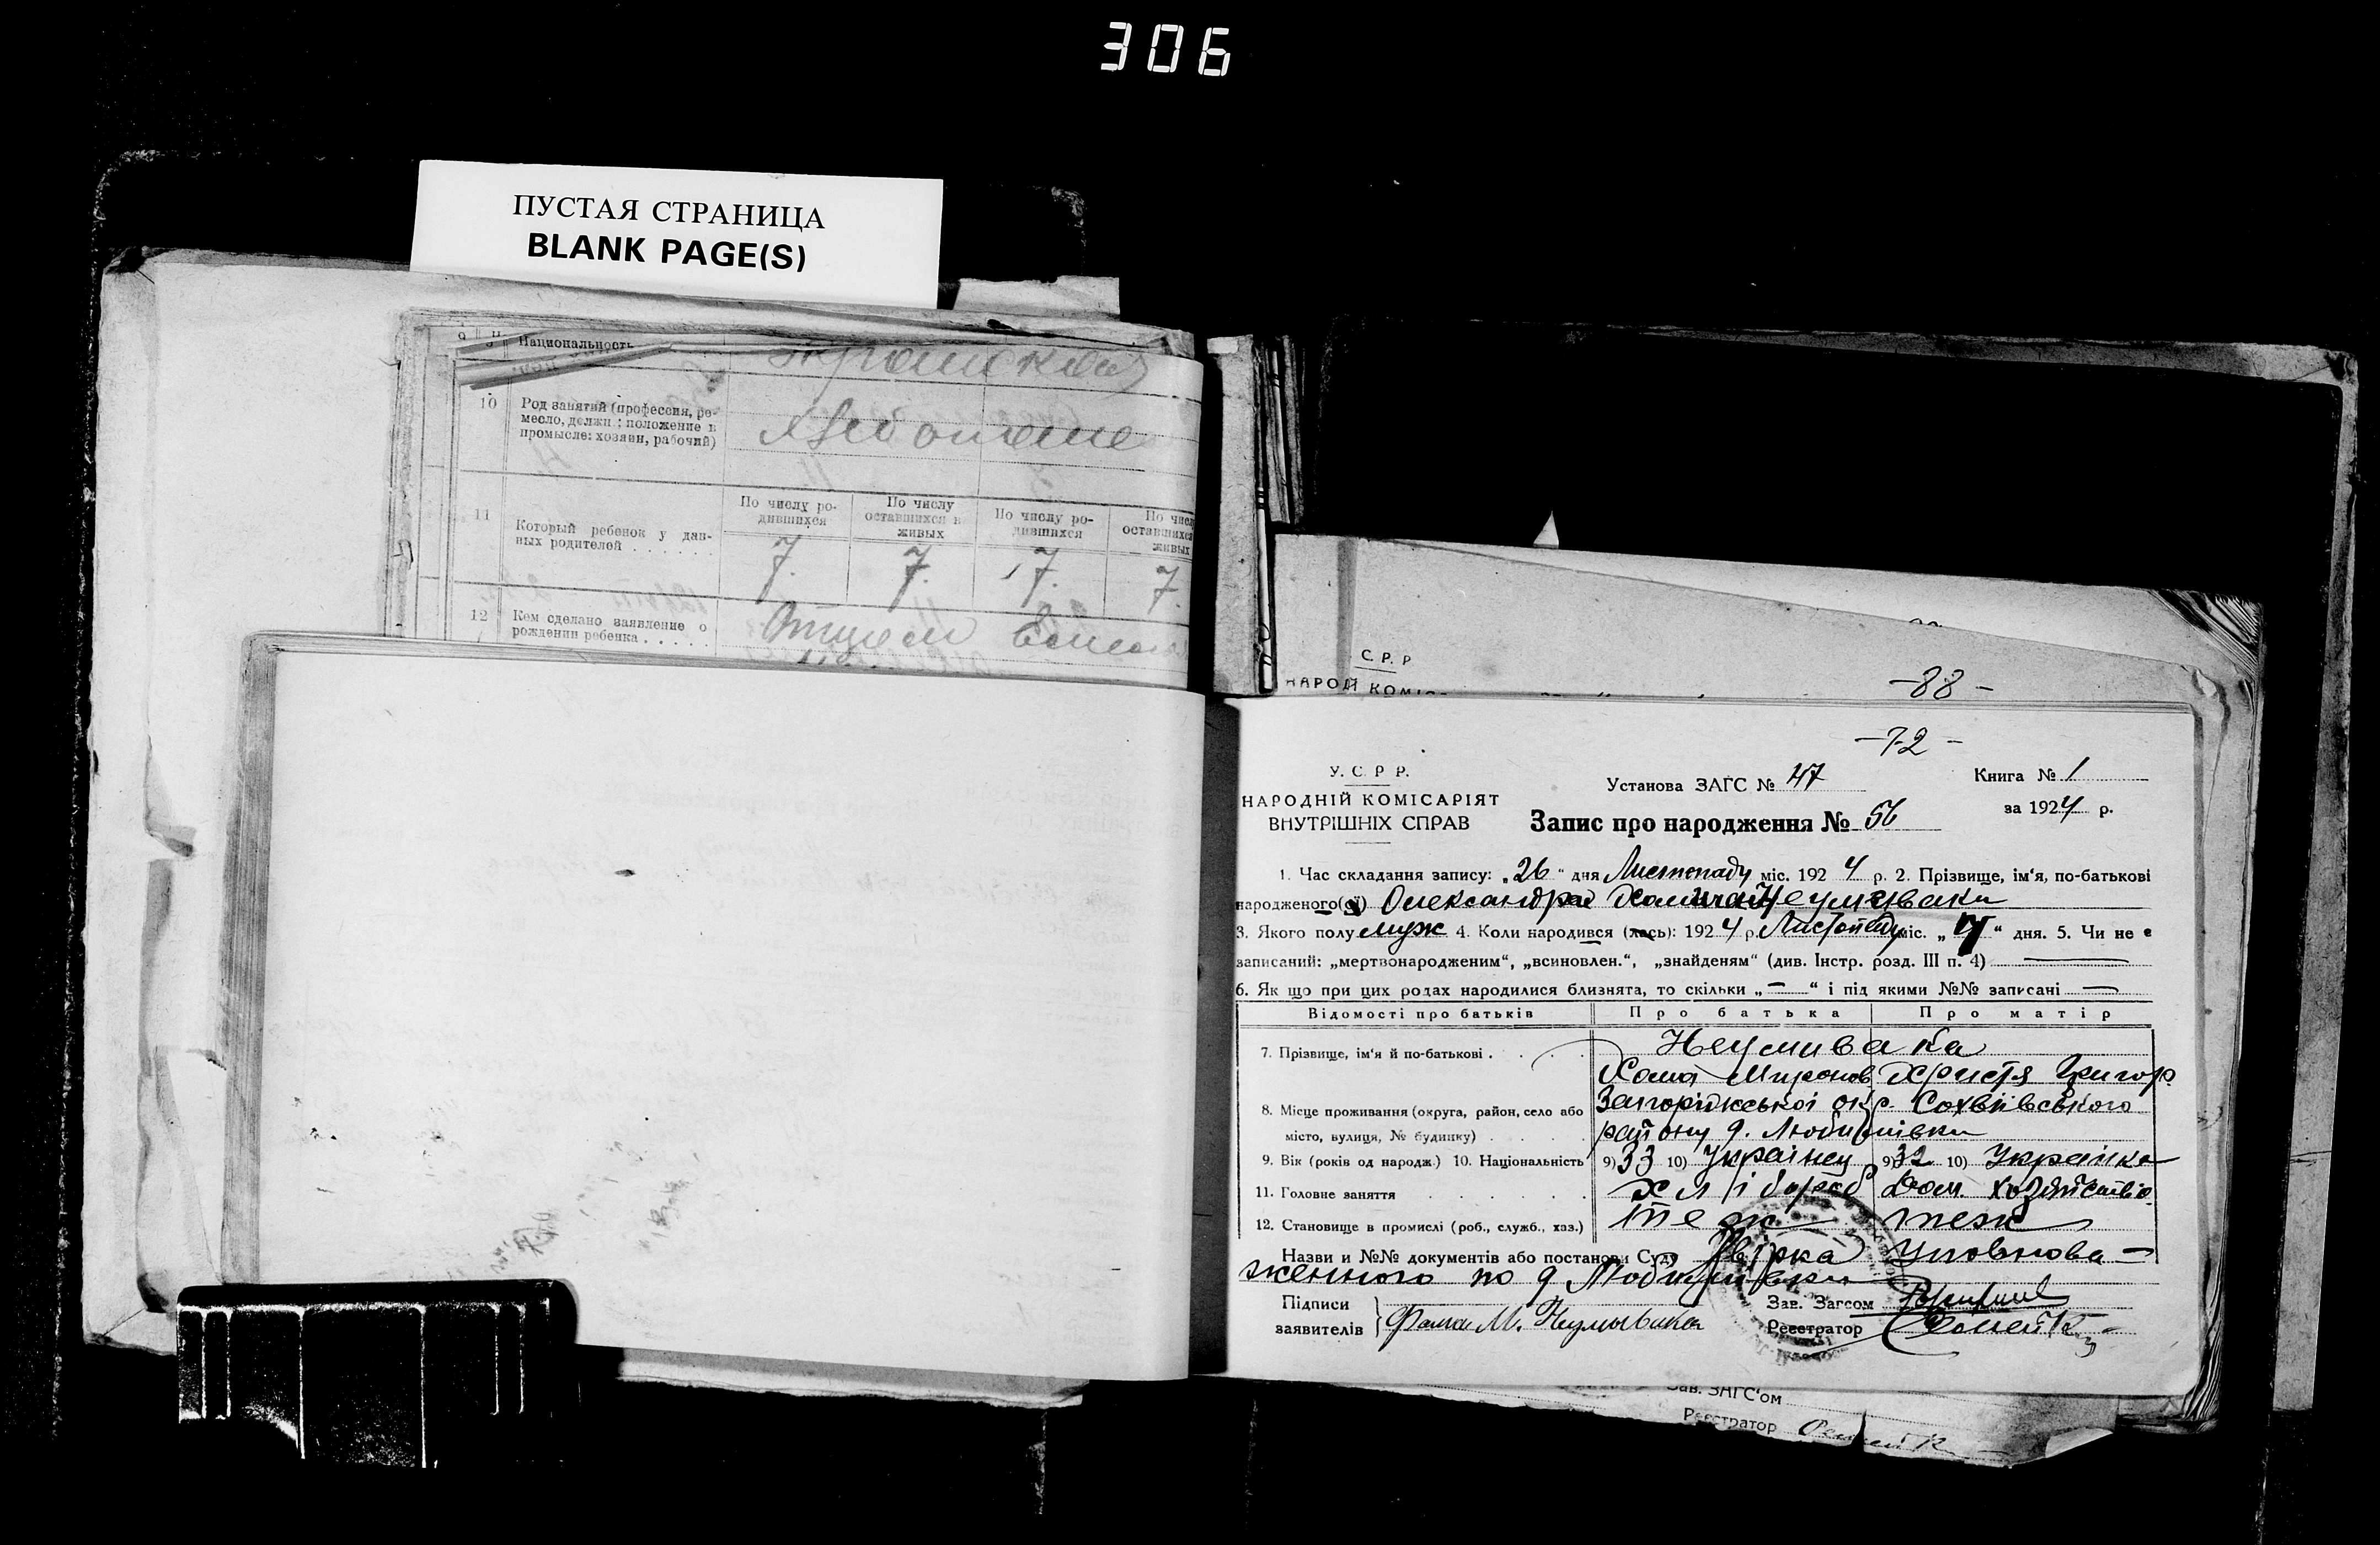 306
ПУСТАЯ СТРАНИЦА
BLANK PAGE(S)
9 Национальность
10 Род занятий (профессия, ре-
месло, должн.: положение в
промысле: хозяин, рабочий)
По числу ро-
дившихся
По числу
оставшихся в
живых
По числу ро-
дившихся
По числ
оставшихся
живых
11 Который ребенок у дан-
ных родителей . . . . . . .
7. 7. 7. 7.
12 Кем сделано заявление о
рождении ребенка . . . . .
Отцом
С. Р. Р
НАРОД КОМІС
-88-
-72-
У. С. Р. Р.
НАРОДНІЙ КОМІСАРІЯТ
ВНУТРІШНІХ СПРАВ
Установа ЗАГС № 47
Книга № 1
за 1924 р.
Запис про народження № 56
1. Час складання запису: „26“ дня Листопаду міс. 1924 р. 2. Прізвище, ім‘я, по-батькові
народженого(ої) Олександра Хомича Неумиваки
3. Якого полу муж 4. Коли народився (лась): 1924 р. Листопаду міс. „ “ дня. 5. Чи не є
записаний: „мертвонародженим“, „всиновлен.“, „знайденям“ (див. Інстр. розд. III п. 4) —
6. Як що при цих родах народилися близнята, то скільки „—“ і під якими №№ записані —
Відомості про батьків Про батька Про матір
7. Прізвище, ім‘я й по-батькові . . . . Неумивака
Хома Миронов Христя Григор
8. Місце проживання (округа, район, село або Запоріжської окр. Софвіївського
місто, вулиця, № будинку) . . . . району
9. Вік (років од народж.) 10. Національність 9) 33 10) Українец 9) 32 10) Українка
11. Головне заняття . . . . . . хлібороб Дом. хозяйство
12. Становище в промислі (роб., служб., хаз.) теж теж
Назви и №№ документів або постанови Суду Уповнова-
женного по
Підписи
заявителів
Фама М. Неумывака
Зав. Загсом
Реєстратор
Зав. ЗАГС‘ом
Реєстратор